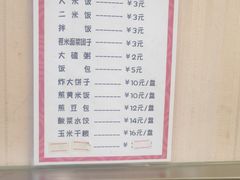 大米饭------¥3元
二米饭------¥3元
拌饭------¥3元
苞米面菜团子------¥3元
大碴粥------¥2元
饭包------¥5元
炸大饼子------¥10元/盘
煎黄米饭------¥10元/盘
煎豆包------¥12元/盘
酸菜水饺------¥14元/盘
玉米干粮------¥16元/盘